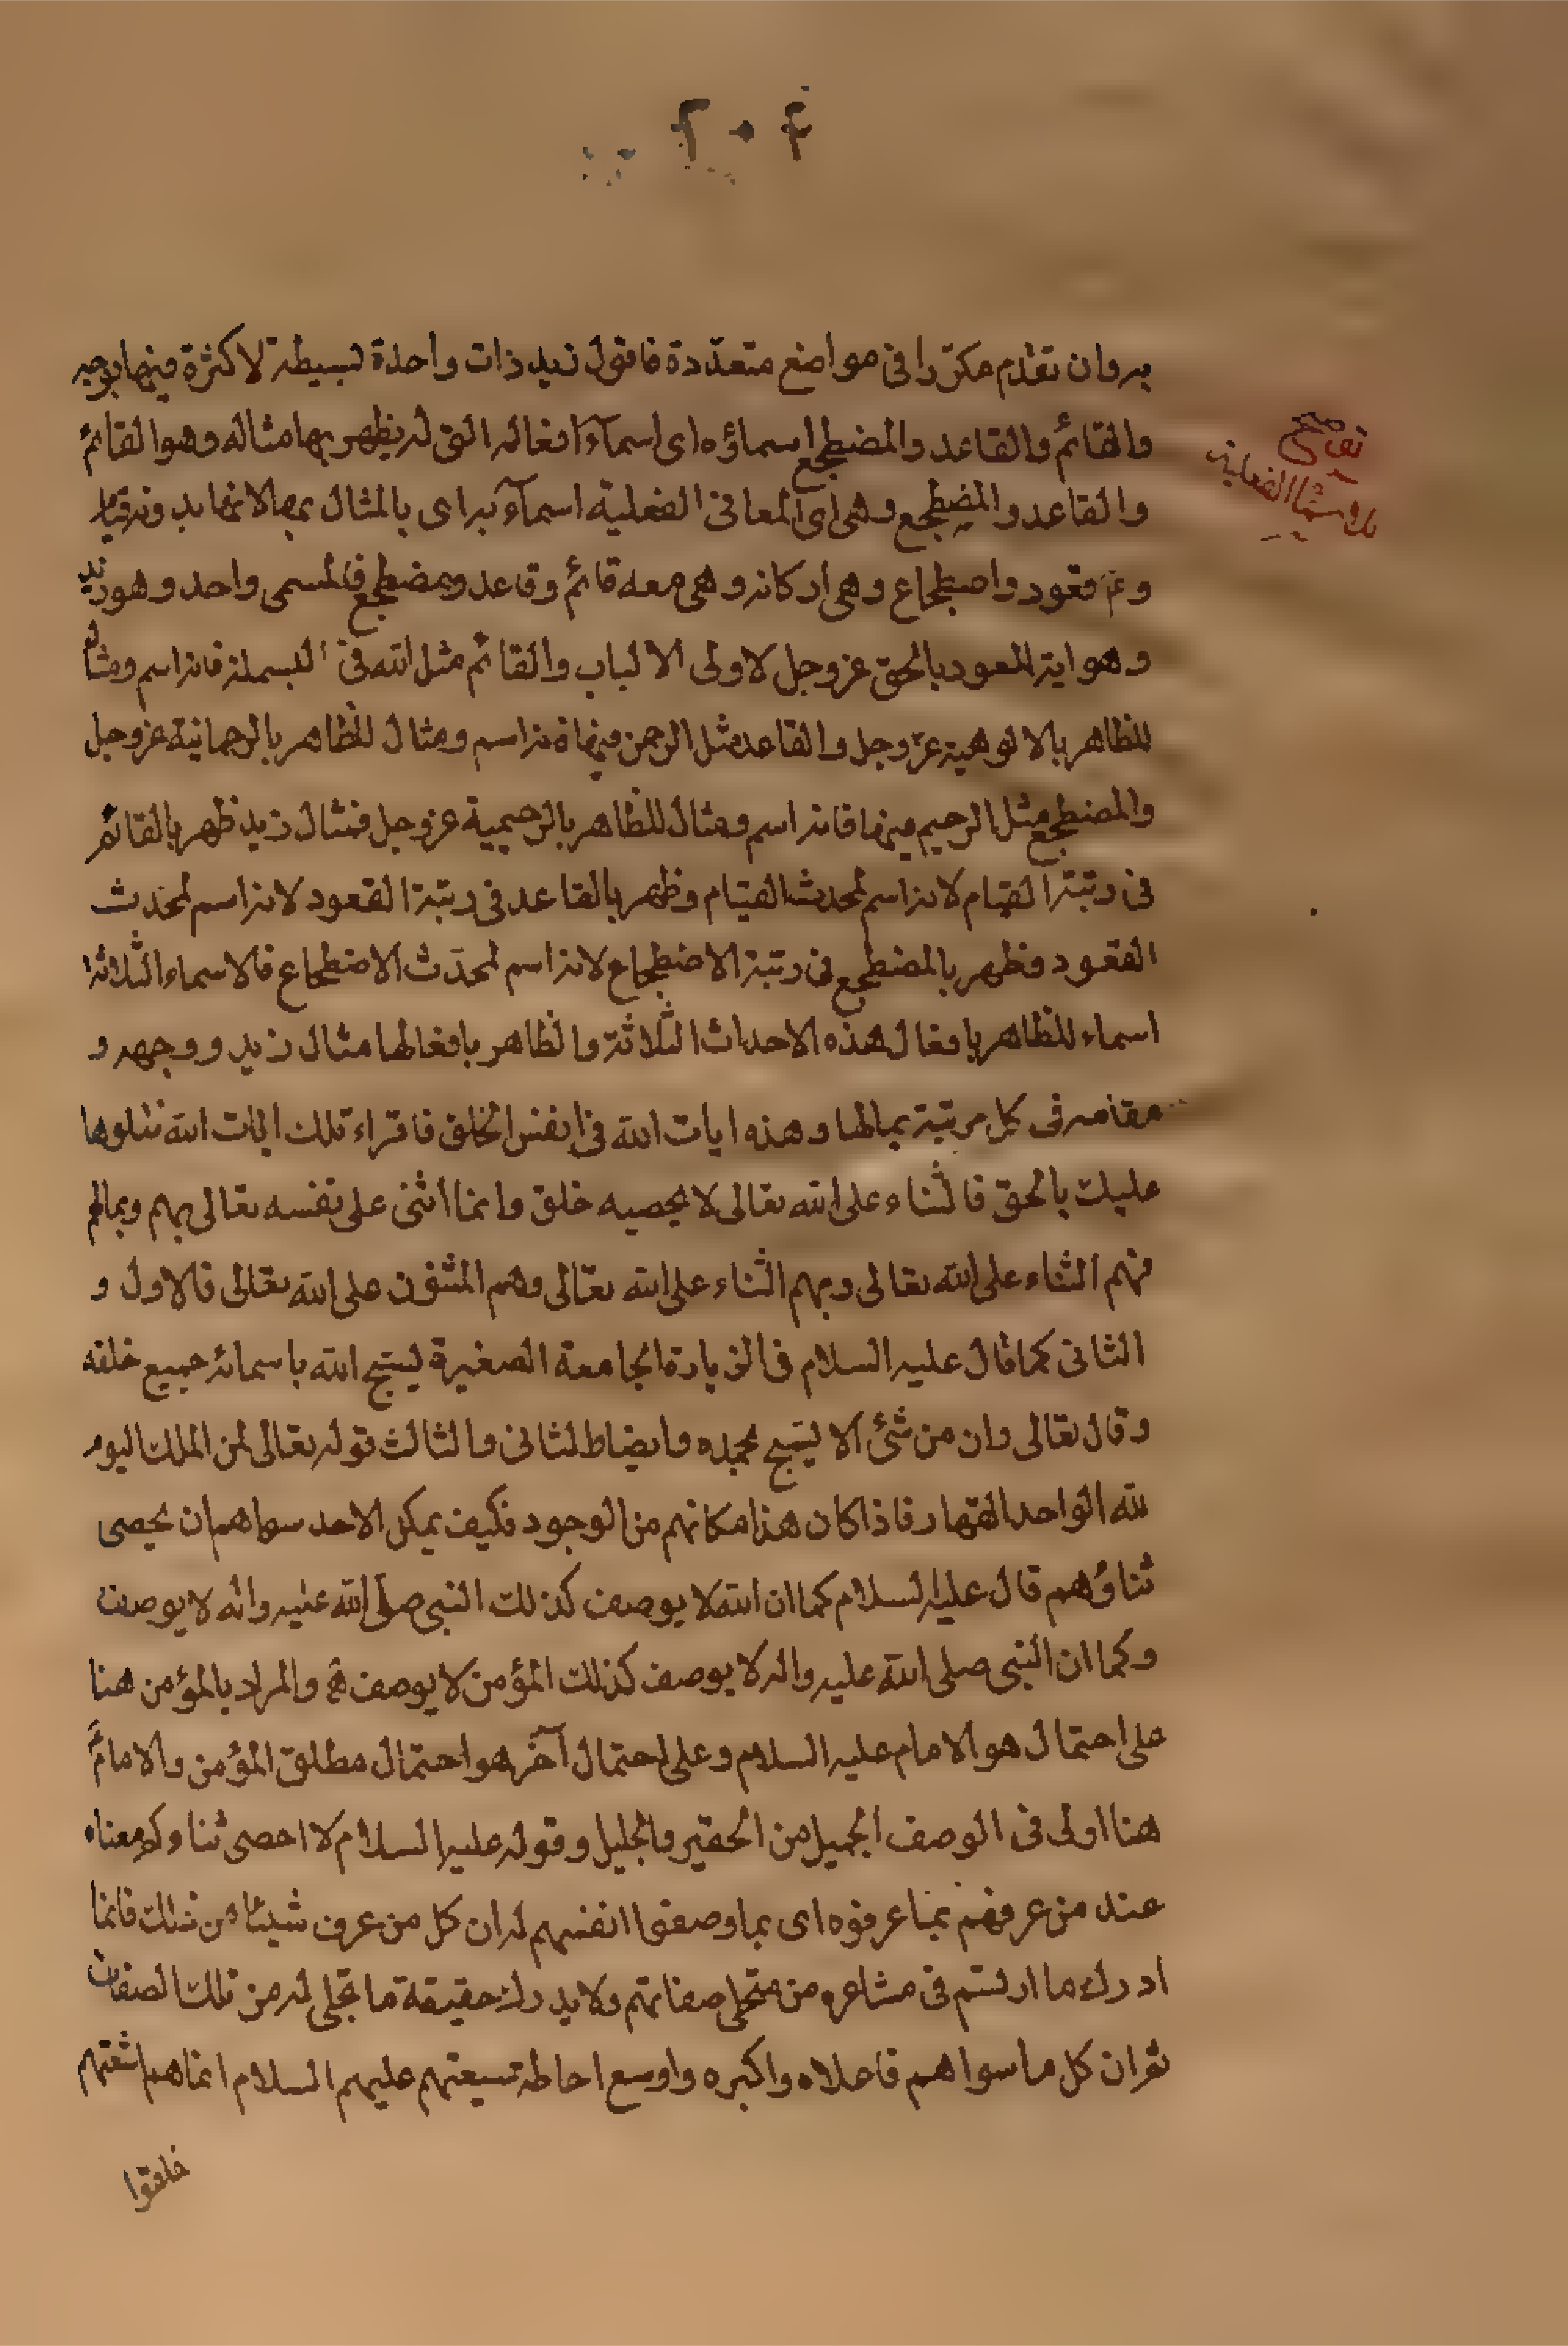 ٢٠٤
به وان تقدم مكرّرا فى مواضع متعدّدة فاقول زيد ذات واحدة بسيطة لا كثرة فيها بوجه
والقائم والقاعد والمضطجع اسماؤه اى اسمآء افعاله التى له يظهر بها مثاله وهو القائم
والقاعد والمضطجع وهى اى المعانى الفعلية اسمآء له اى بالمثال بها لانها به وله قيام
وقعود واضطجاع وهى اركانه وهى معه قائم وقاعد ومضطجع فالمسمى واحد وهو زيد
وهو اية المعبود بالحق عز وجل لاولى الالباب والقائم مثل الله فى البسملة فانه اسم ومثال
للظاهر بالالوهية عزّ وجل والقاعد مثل الرحمن فيها فانه اسم ومثال للظاهر بالرحمانية عز وجل
والمضطجع مثل الرحيم فيها فانه اسم ومثال للظاهر بالرحيمية عز وجل فمثال زيد ظهر بالقائم
فى رتبة القيام لانه اسم لمحدث القيام وظهر بالقاعد فى رتبة القعود لانه اسم لمحدث
القعود وظهر بالمضطجع فى رتبة الاضطجاع لانه اسم لمحدث الاضطجاع فالاسماء الثلاثة
اسماء للظاهر بافعال هذه الاحداث الثلاثة والظاهر بافعالها مثال زيد ووجهه و
مقامه فى كل مرتبة بمالها وهذه ايات الله فى انفس الخلق فاقراء تلك ايات الله نتلوها
عليك بالحق فالثناء على الله تعالى لا يحصيه خلق وانما اثنى على نفسه تعالى بهم وبمالهم
فهم الثناء على الله تعالى وبهم الثناء على الله تعالى وهم المثنون على الله تعالى فالاول و
الثانى كما قال عليه السلام فى الزيارة الجامعة الصغيرة يسبح الله باسمائه جميع خلقه
وقال تعالى وان من شئ الا يسبح بحمده وايضا الثانى والثالث قوله تعالى لمن الملك اليوم
لله الواحد القهار فاذا كان هذا مكانهم من الوجود فكيف يمكن لاحد سواهم ان يحصى
ثناؤهم قال عليه السلام كما ان الله لا يوصف كذلك النبى صلى الله عليه واله لا يوصف
وكما ان النبى صلى الله عليه واله لا يوصف كذلك المؤمن لا يوصف والمراد بالمؤمن هنا
على احتمال هو الامام عليه السلام وعلى احتمال آخر هو احتمال مطلق المؤمن والامام
هنا اولى فى الوصف الجميل من الحقير والجليل وقوله عليه السلام لا احصى ثناوكم معناه
عند من عرفهم بما عرفوه اى بما وصفوا انفسهم له ان كل من عرف شيئا من ذلك فانما
ادرك ما ارتسم فى مشاعره من متجلى صفاتهم ولا يدرك حقيقة ما تجلى له من تلك الصفات
ثم ان كل ما سواهم فاعلاه واكبره واوسع احاطة شيعتهم عليهم السلام انما هم اشعتهم
خلقوا